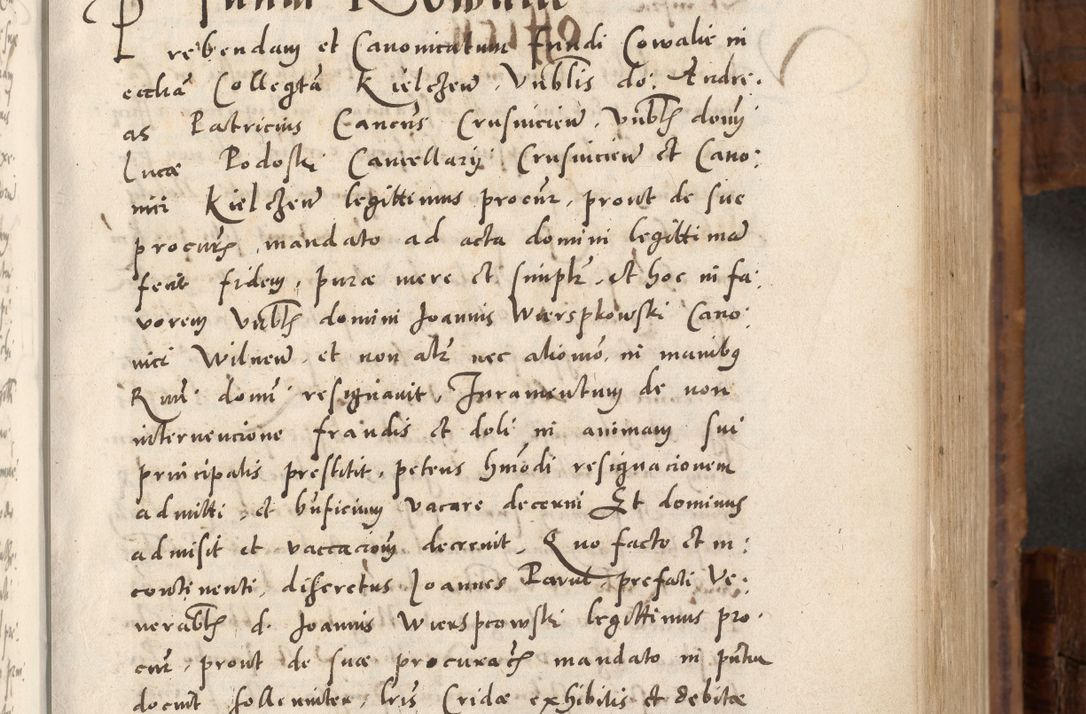 Prebendam et Canonicatum fundi Cowalie in
eccliā Collegtā Kielczeñ. Vnblis do: Andre.
as Patricius Cancrs Crusuicień. Vnbts domi
Lucæ Podoski Cancellarij Crusuicień et Cano:
nici Kielczeñ legittimus procūr, prout de sue
procurs mandato ad acta domini legittimā
fecit fidem, puræ mere et simplr, et hoc in fa:
vorem Vnbts domini Joannis Wierspkowski Cano:
nici Wilneñ. et non altr nec aliomō, in manibus
Rmi domi resignauit, Juramentum de non
interuencione fraudis et doli in animam sui
principalis prestitit, petens hmōdi resignacionem
admitti, et bnficium vacare decerni Et dominus
admisit et vaccaciom decreuit. Quo facto et in:
continenti, discretus Joannes Parul prefati Ve:
nerabts d. Joannis Wierspcowski legittimus pro:
cūr, prout de suæ procurats mandato in pntia
docuit sollenniter, lris Cridæ exhibitis et debitæ